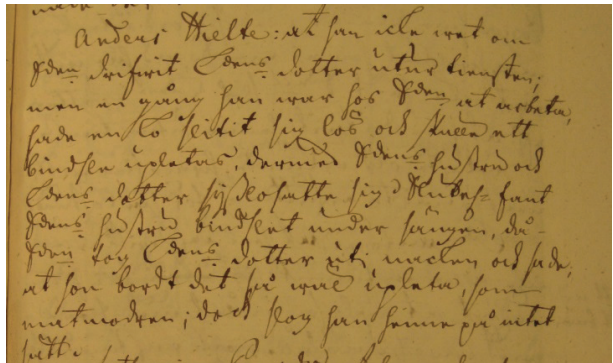 Anders Hielte: at han icke wet om
Sden drifwit Cdens dotter utur tiensten;
men en gång han war hos Sden at arbeta,
hade en ko slitit sig lös och skulle ett
bindsle upletas, dermed Sdens hustru och
Cdens dotter sysslosatte sig; fant
Sdens hustru bindslet under sängen, då
Sden tog Cdens dotter uti nacken och sade,
at hon bordt det så wäl upleta, som
matmodren; dock slog han henne på intet
sätt.